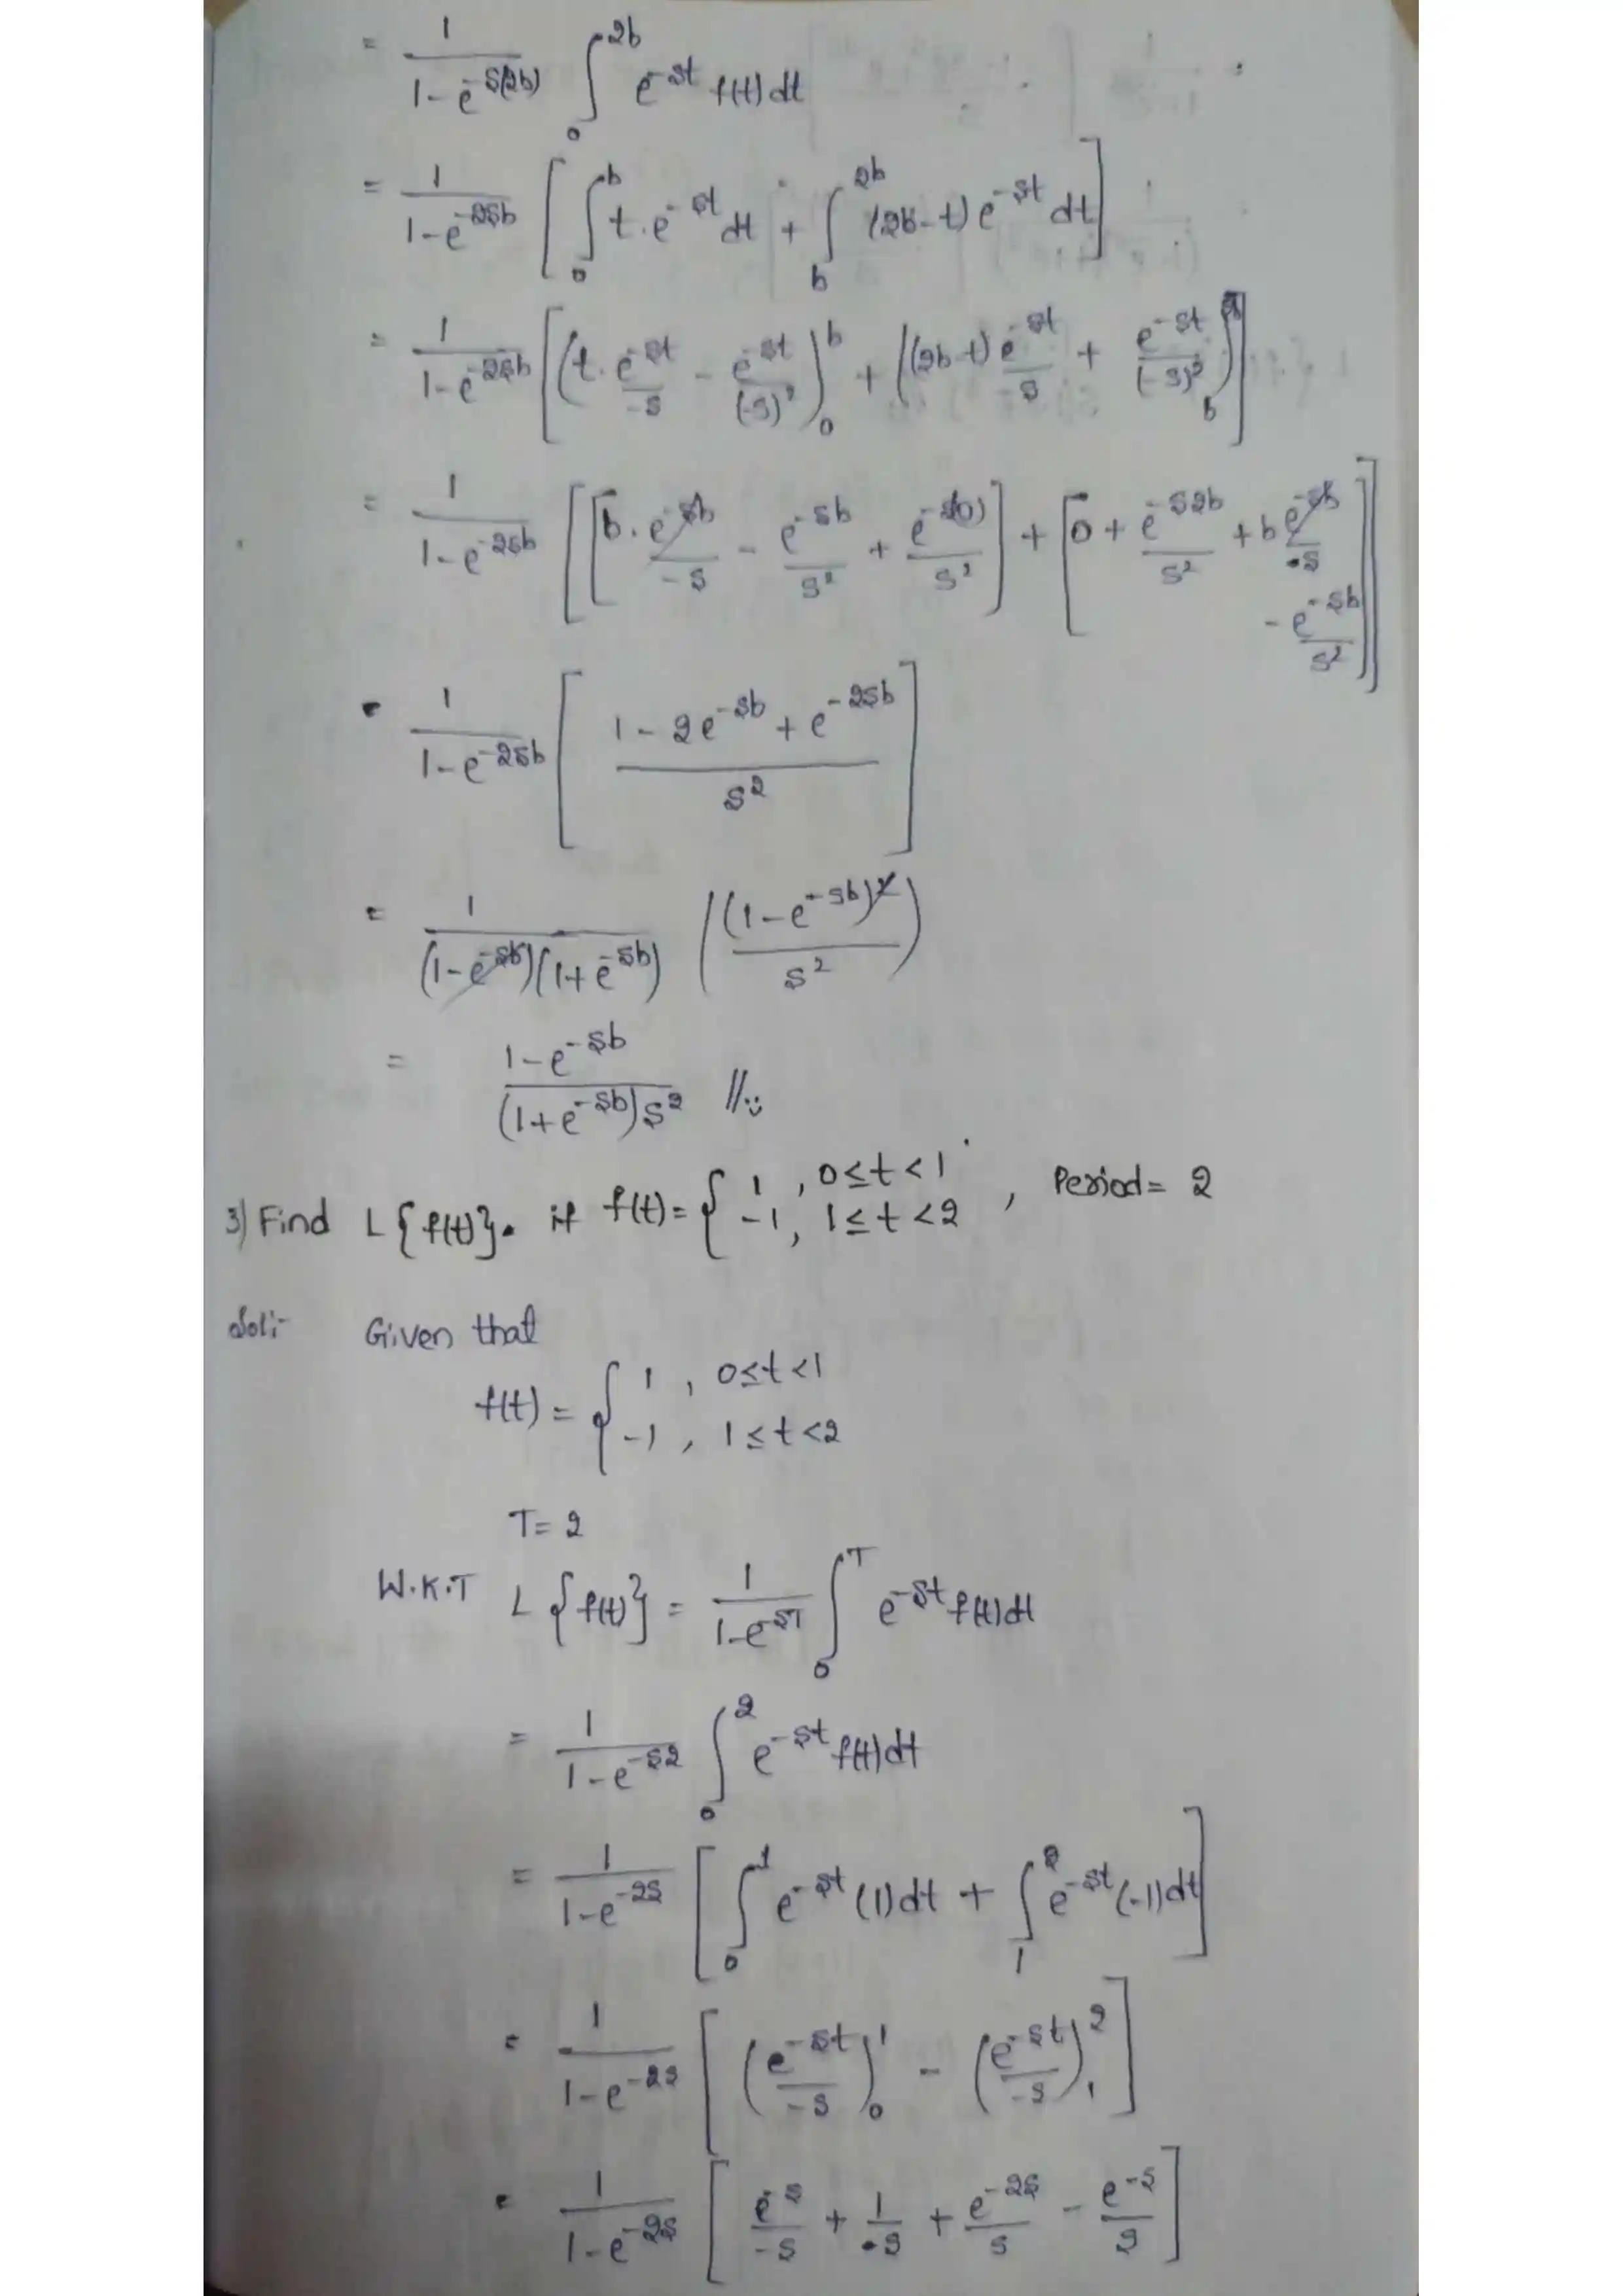 = 1/(1-e^-s(2b)) ∫_0^2b e^-st f(t) dt
= 1/(1-e^-2sb) [ ∫_0^b t.e^-st dt + ∫_b^2b (2b-t) e^-st dt ]
= 1/(1-e^-2sb) [ (t. e^-st/-s - e^-st/(-s)²)_0^b + ((2b-t) e^-st/-s + e^-st/(-s)²)_b^2b ]
= 1/(1-e^-2sb) [ [ b. e^-sb/-s - e^-sb/s² + e^-s(0)/s² ] + [ 0 + e^-s2b/s² + b e^-sb/s - e^-sb/s² ] ]
= 1/(1-e^-2sb) [ (1 - 2e^-sb + e^-2sb)/s² ]
= 1/((1-e^-sb)(1+e^-sb)) ( (1-e^-sb)²/s² )
= (1-e^-sb)/((1+e^-sb)s²) //
3) Find L{f(t)}. if f(t) = { 1 , 0≤t<1 ; -1 , 1≤t<2 , Period = 2
Sol:- Given that
f(t) = { 1 , 0≤t<1
-1 , 1≤t<2
T= 2
W.K.T L{f(t)} = 1/(1-e^-sT) ∫_0^T e^-st f(t) dt
= 1/(1-e^-s2) ∫_0^2 e^-st f(t) dt
= 1/(1-e^-2s) [ ∫_0^1 e^-st (1) dt + ∫_1^2 e^-st (-1) dt ]
= 1/(1-e^-2s) [ (e^-st/-s)_0^1 - (e^-st/-s)_1^2 ]
= 1/(1-e^-2s) [ e^-s/-s + 1/s + e^-2s/s - e^-s/s ]